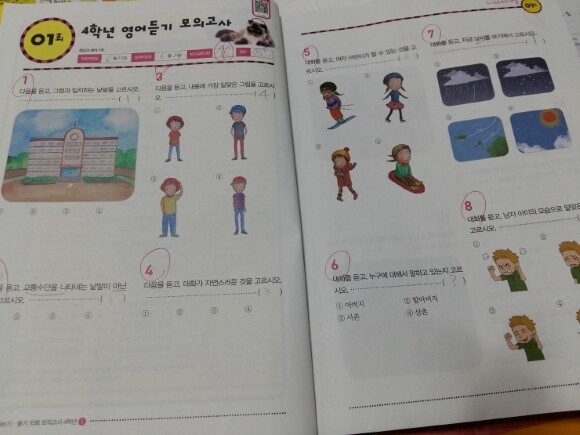 01회
4학년 영어듣기 모의고사
1
다음을 듣고, 그림과 일치하는 낱말을 고르시오.
① ② ③ ④
3
다음을 듣고, 내용에 가장 알맞은 그림을 고르시
오. (4)
① ②
③ ④
듣고, 교통수단을 나타내는 낱말이 아닌
고르시오.
② ③ ④
4
다음을 듣고, 대화가 자연스러운 것을 고르시오.
① ② ③ ④
모의고사 4학년 1
01
5
대화를 듣고, 여자 어린이가 할 수 있는 것을 고
르시오.
① ②
③ ④
6
대화를 듣고, 누구에 대해서 말하고 있는지 고르
시오. (3)
① 아버지 ② 할아버지
③ 사촌 ④ 삼촌
7
대화를 듣고, 지금 날씨를 보기에서 고르시오.
① ②
③ ④
8
대화를 듣고, 남자 아이의 모습으로 알맞은
고르시오.
① ②
③ ④